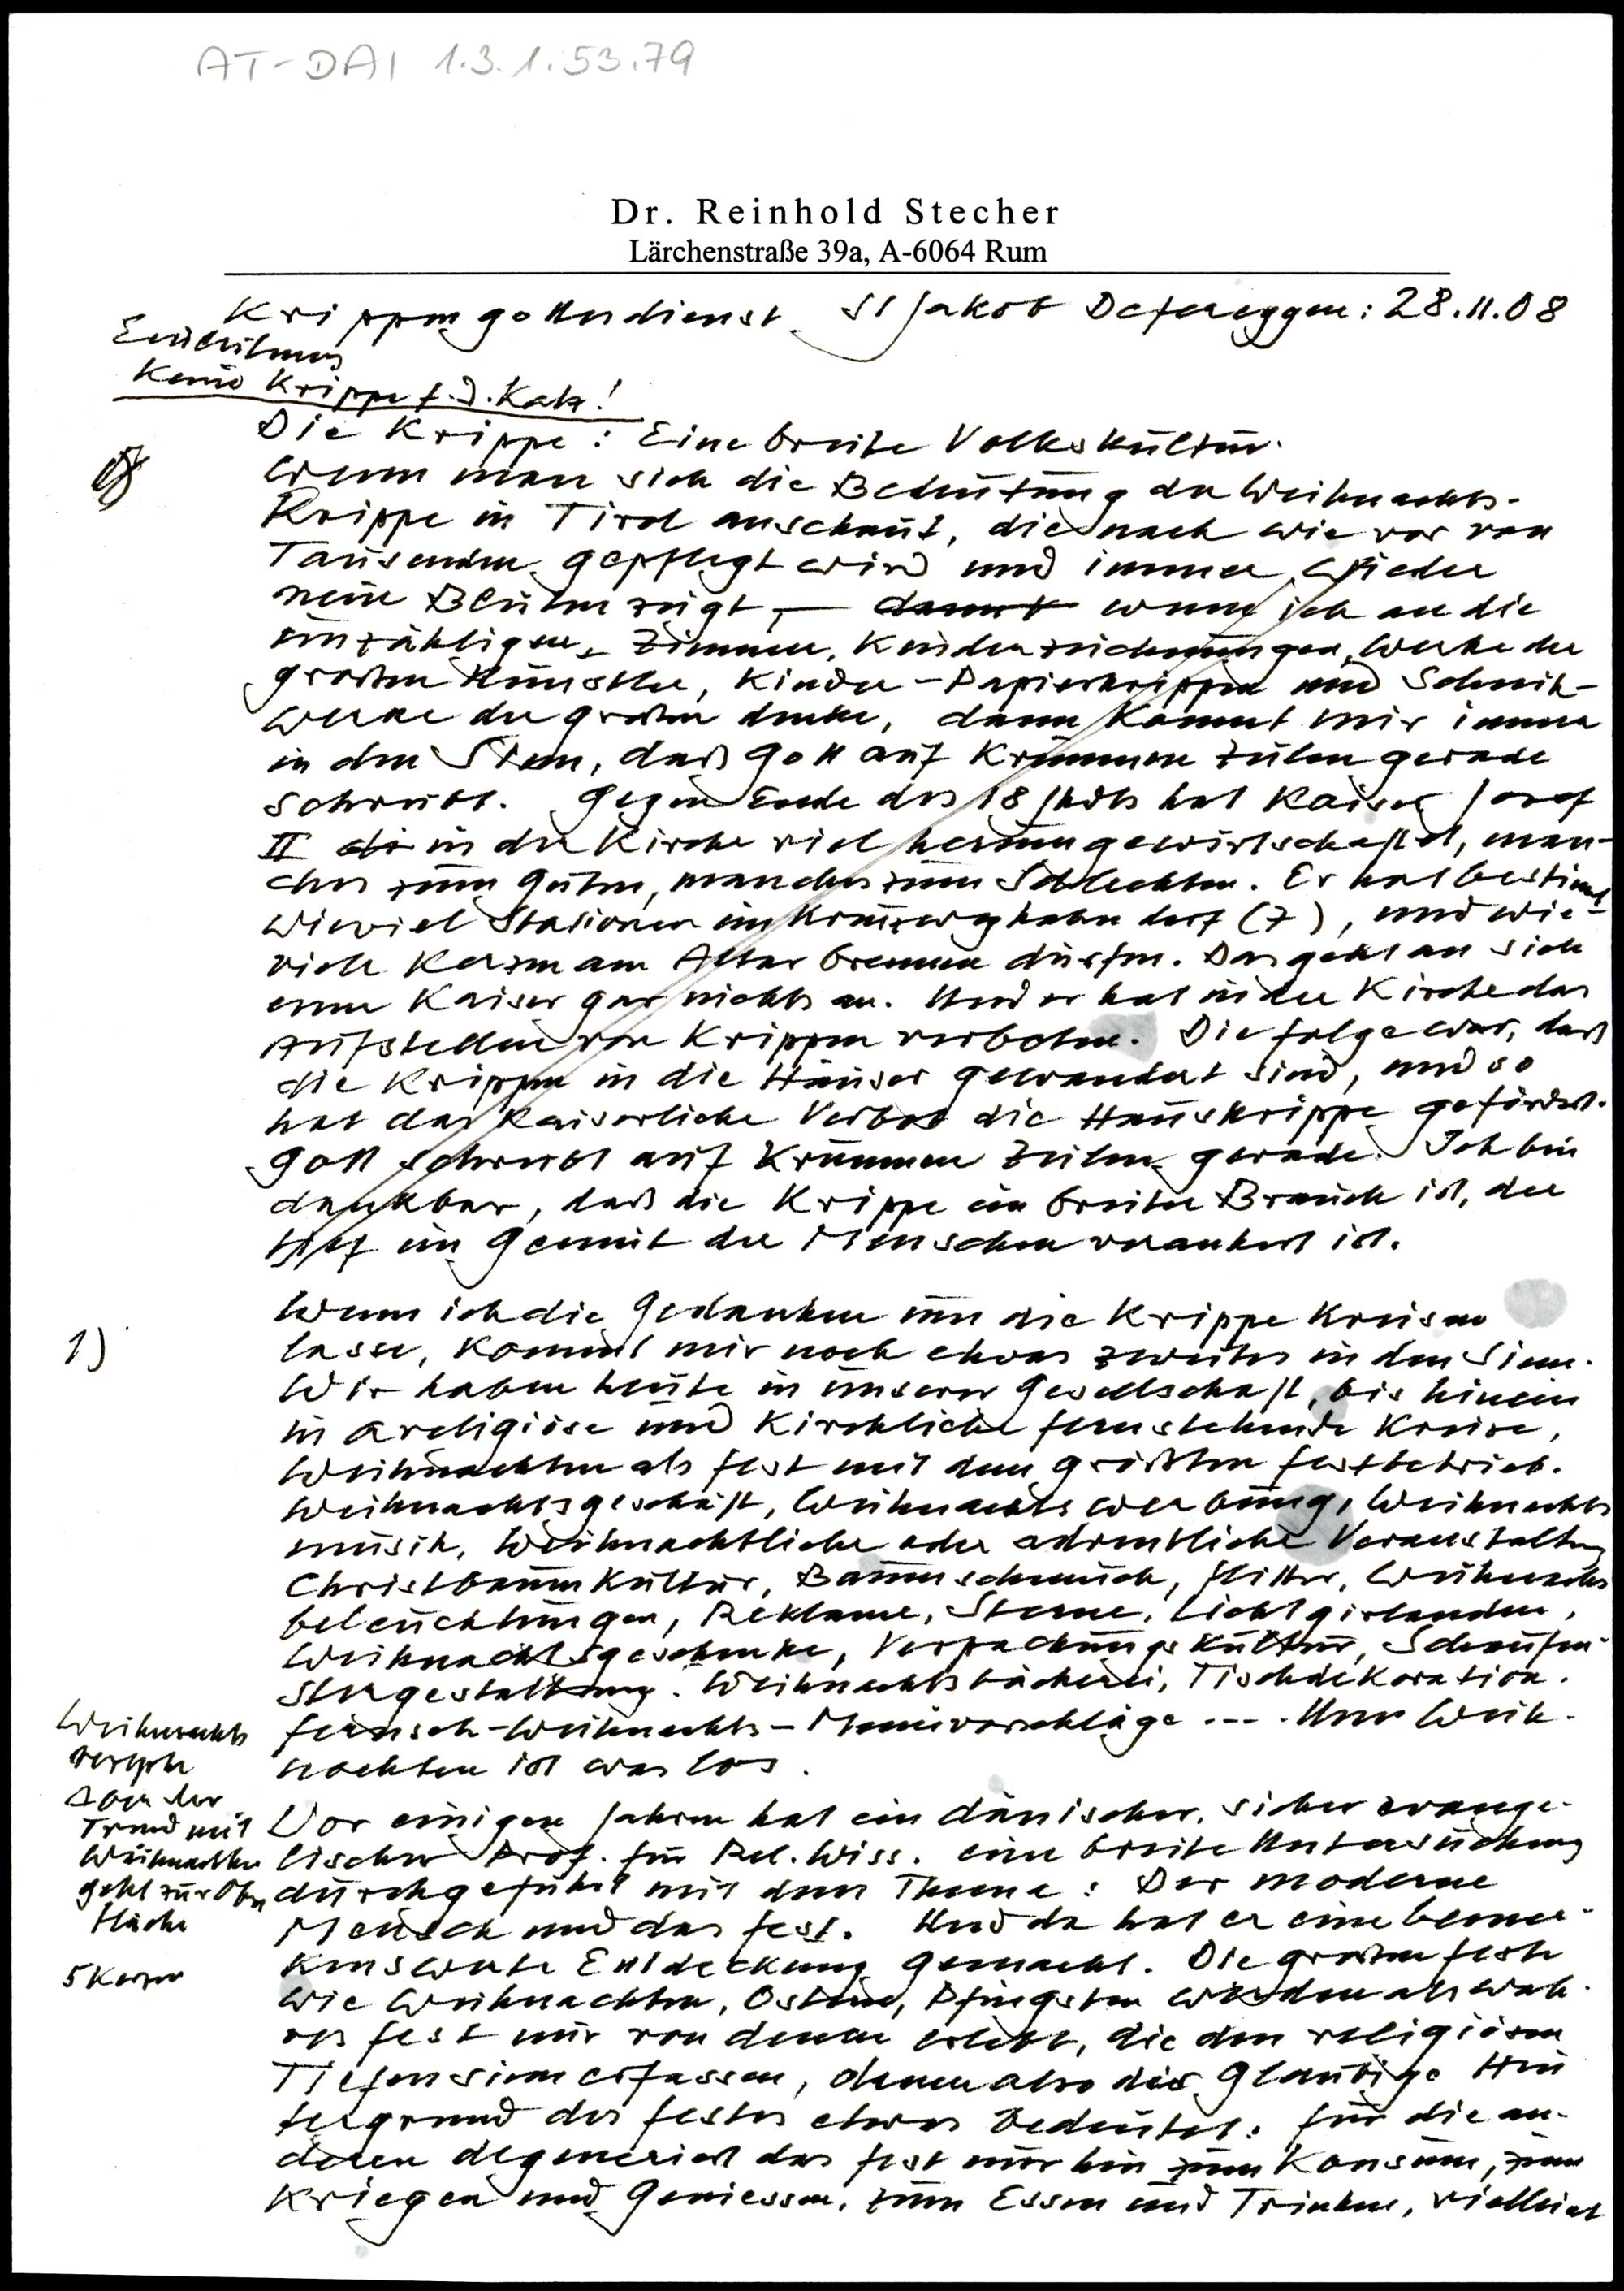 AT-DAI 1.3.1.53.79
Dr. Reinhold Stecher
Lärchenstraße 39a, A-6064 Rum
Krippengottesdienst St Jakob Defereggen: 28.11.08
Krippe f. d. Katz!
Die Krippe: Eine breite Volkskultur.
Wenn man sich die Bedeutung der Weihnachts-
Krippe in Tirol anschaut, die nach wie vor von
Tausenden gepflegt wird und immer wieder
neue Blüten zeigt, — damit wenn ich an die
unzähligen Zimmer, Kinderzeichnungen, Werke der
großen Künstler, Kinder-Papierkrippen und Schnitz-
werke der großen denke, dann kommt mir immer
in den Sinn, daß Gott auf Krummen Zeilen gerade
schreibt. Gegen Ende des 18 Jhdts hat Kaiser Josef
II in der Kirche viel herumgewirtschaftet, man-
ches zum Guten, manches zum Schlechten. Er hat bestimmt
wieviel Stationen ein Kreuzweg haben darf (7), und wie-
viele Kerzen am Altar brennen dürfen. Das geht an sich
einen Kaiser gar nichts an. Und er hat in der Kirche das
Aufstellen von Krippen verboten. Die Folge war, daß
die Krippen in die Häuser gewandert sind, und so
hat das Kaiserliche Verbot die Hauskrippe gefördert.
Gott schreibt auf Krummen Zeilen gerade. Ich bin
dankbar, daß die Krippe ein breiter Brauch ist, der
tief im Gemüt der Menschen verankert ist.
1)
Wenn ich die Gedanken um die Krippe Kreisen
lasse, kommt mir noch etwas zweites in den Sinn.
Wir haben heute in unserer Gesellschaft, bis hinein
in areligiöse und Kirchliche fernstehende Kreise,
Weihnachten als Fest mit dem größten Festbetrieb.
Weihnachtsgeschäft, Weihnachtswerbung, Weihnachts
musik, Weihnachtliche oder adventliche Veranstaltung
Christbaumkultur, Baumschmuck, Flitter, Weihnachts
beleuchtungen, Reklame, Sterne, Lichtgirlanden,
Weihnachtsgeschenke, Verpackungskultur, Schaufen-
stergestaltung. Weihnachtsbäckerei, Tischdekoration.
Fernseh-Weihnachts-Menüvorschläge .... Um Weih-
nachten ist was los.
Weihnachts
Aber der
Trend mit
Weihnachten
geht zur Ober
fläche
5 Kerzen
Vor einigen Jahren hat ein dänischer, sicher evange-
lischer Prof. für Rel. Wiss. eine breite Untersuchung
durchgeführt mit dem Thema: Der moderne
Mensch und das Fest. Und da hat er eine bemer-
kenswerte Entdeckung gemacht. Die großen Feste
wie Weihnachten, Ostern, Pfingsten werden als wah-
res Fest nur von denen erlebt, die den religiösen
Tiefensinn erfassen, denen also der gläubige Hin
tergrund des Festes etwas bedeutet. Für die an-
deren degeneriert das Fest nur hin zum Konsum, zum
Kriegen und Geniessen, zum Essen und Trinken, vielleicht